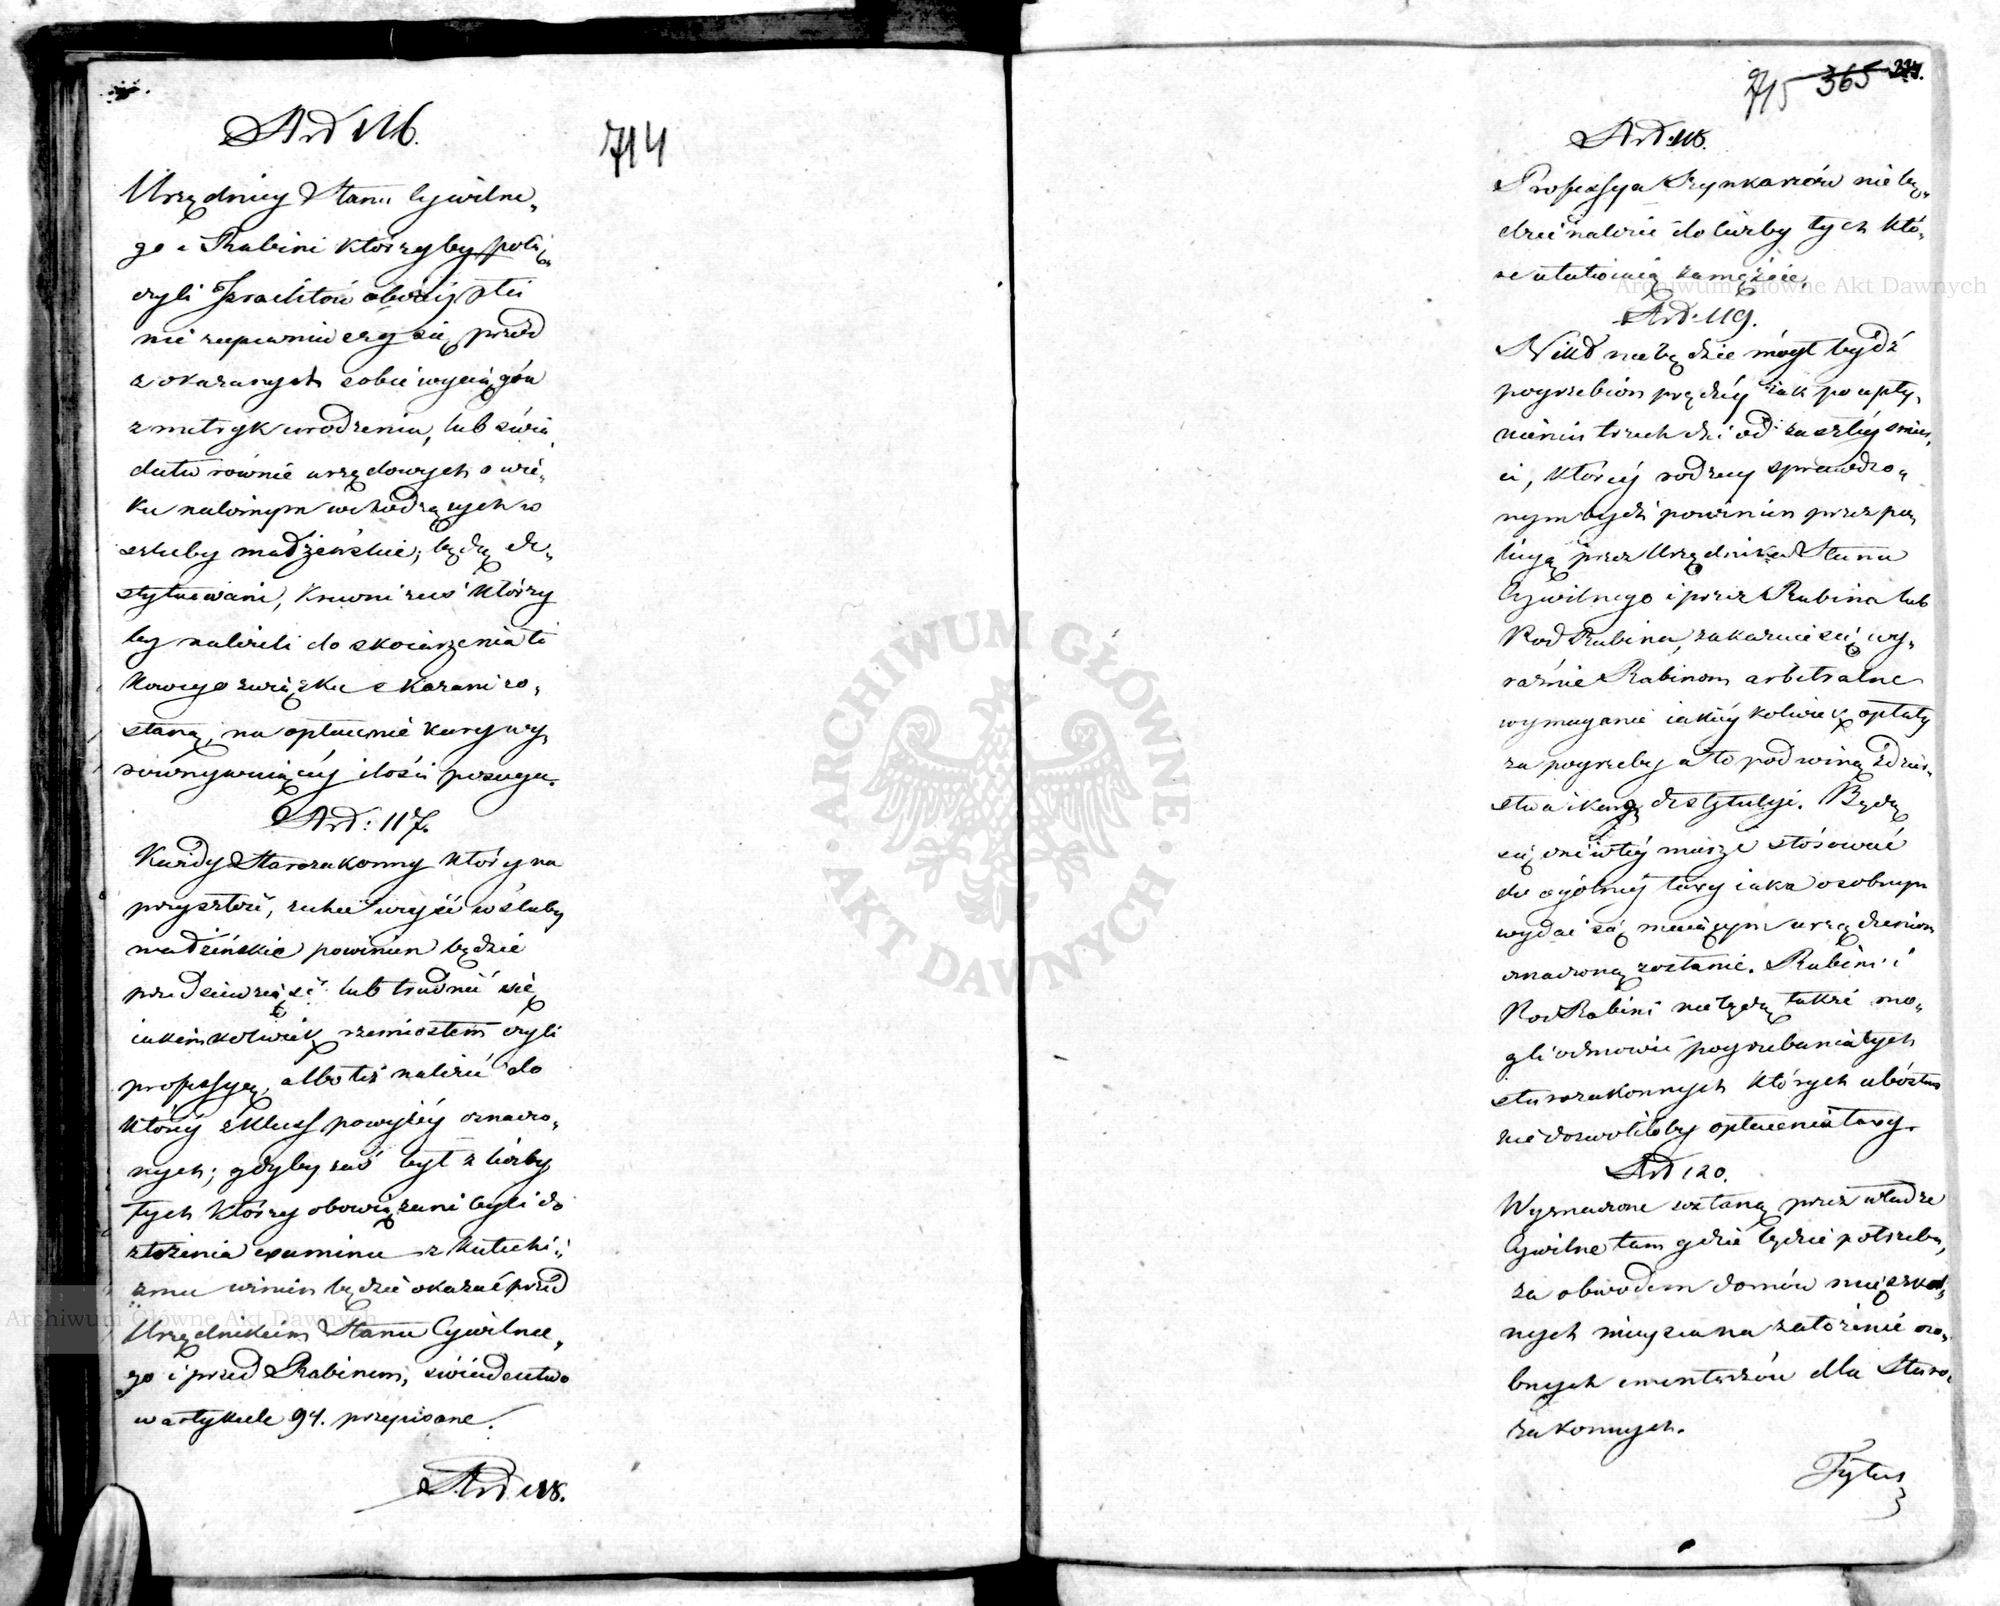 714
Art 116.
Urzędnicy Stanu Cywilne„
go i Rabini którzyby połą„
czyli Izraelitów oboiéj płci
nie zapewniwszy się przód
z okazanych sobie wyciągów
z metryk urodzenia, lub świa„
dectw równie urzędowych o wie„
ku należnym wchodzących w
szluby małżeńskie, będą de„
stytuowani, krewni zaś którzy
by należeli do skojarzenia ta
kowego związku skazani zo„
staną, na opłacenie kary wy„
równywaiącéj ilości posagu.
Art: 117.
Każdy Starozakonny który na
przyszłość, zechce wejść w śluby
małżeńskie powinien będzie
przedsiewziąść lub trudnić się
iakimkolwiek rzemiosłem czyli
professyą, albo też należeć do
któréj z Klass powyżéj oznaczo„
nych; gdyby zaś był z liczby
tych którzy obowiązani byli do
złożenia examinu z Katechi„
zmu winien będzie okazać przed
Urzędnikiem Stanu Cywilne„
go i przed Rabinem, świadectwo
w artykule 94. przepisane.
Art 118.
715 365 274.
Art: 118.
Professya Szynkarzów nie bę„
dzie należeć do liczby tych któ„
re ułatwiaią zamęźcie,
Art: 119.
Nikt nie będzie mógł bydź
pogrzebion prędzéj iak po upły„
nieniu trzech dni od zaszłéj śmier„
ci, któréj rodzay sprawdzo„
nym bydź powinien przez po„
licyą przez Urzędnika Stanu
Cywilnego i przez Rabina lub
Pod Rabina, zakazuie się wy„
raźnie Rabinom arbitralne
wymaganie iakiéy kolwiek opłaty
za pogrzeby a to pod winą zdzier„
stwa i karą destytucyi. Będą
się oni w téj mierze stósować
do ogólnéj taxy iaka osobnym
wydać się maiącym urządzeniem
oznaczoną zostanie. Rabini i
Pod Rabini nie będą także mo„
gli odmówić pogrzebania tych
starozakonnych których ubóstwo
nie dozwoliłoby opłacenia taxy.
Art 120.
Wyznaczone zostaną przez władze
Cywilne tam gdzie będzie potrzeba,
za obwodem domów mieszkal„
nych mieysca na założenie oso„
bnych cmentarzów dla Staro„
zakonnych.
Tytuł
ARCHIWUM GŁÓWNE AKT DAWNYCH
Archiwum Główne Akt Dawnych
Archiwum Główne Akt Dawnych